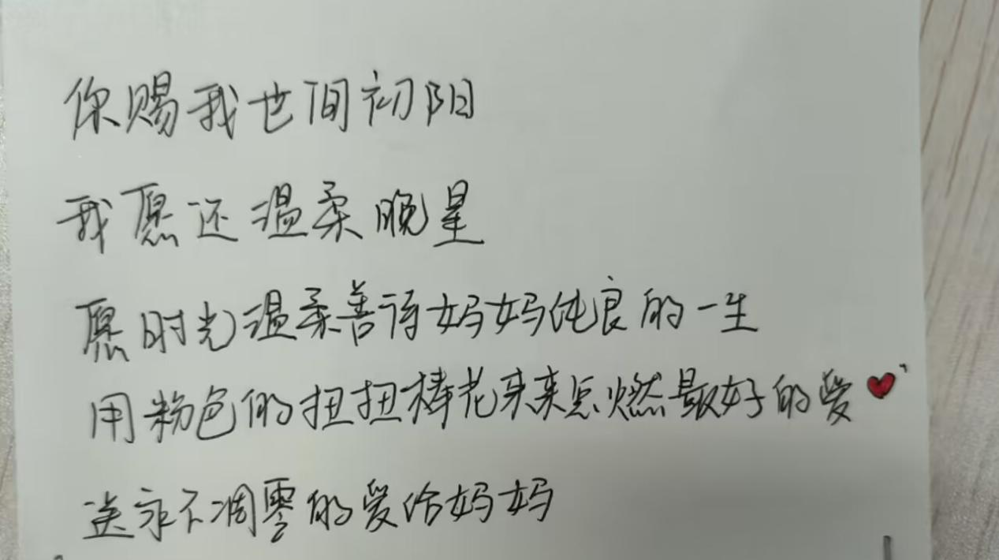 你赐我世间初阳
我愿还温柔晚星
愿时光温柔善待妈妈纯良的一生
用粉色的扭扭棒花来来点燃最好的爱
送永不凋零的爱给妈妈